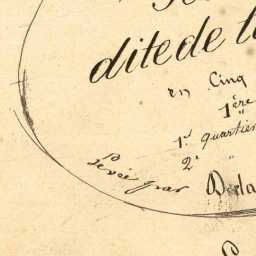 dite de
en Cinq
1ère
1r quartier
2e "
Levée par